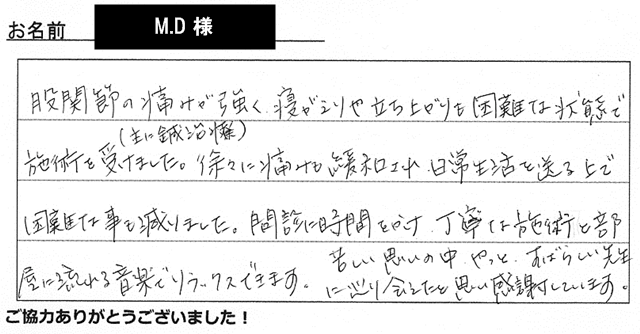 お名前 M.D 様
股関節の痛みが強く、寝がえりや立ち上がりも困難な状態で
(主に鍼治療)
施術を受けました。徐々に痛みも緩和され、日常生活を送る上で
困難な事も減りました。問診に時間をかけ、丁寧な施術と部
屋に流れる音楽でリラックスできます。苦しい思いの中、やっと、すばらしい先生
に巡り会えたと思い感謝しています。
ご協力ありがとうございました!